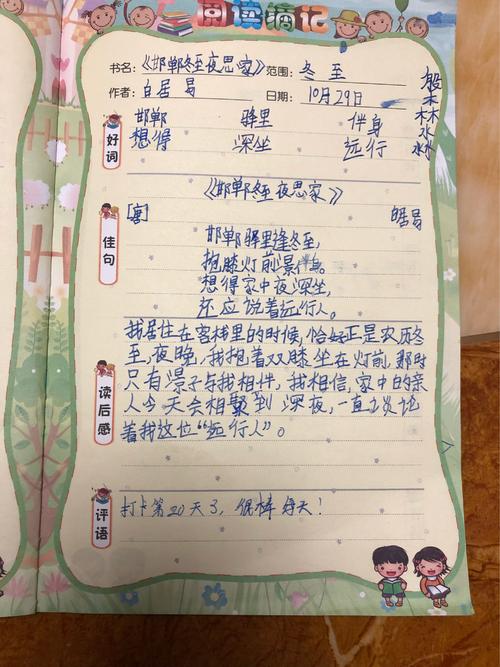 阅读摘记
书名：《邯郸冬至夜思家》范围：冬至
作者：白居易 日期：10月29日
好词
邯郸 驿里 伴身
想得 深坐 远行
佳句
《邯郸冬至夜思家》
[唐] 白居易
邯郸驿里逢冬至，
抱膝灯前景伴身。
想得家中夜深坐，
还应说着远行人。
读后感
我居住在客栈里的时候，恰好正是农历冬
至，夜晚，我抱着双膝坐在灯前，那时
只有景子与我相伴，我相信，家中的亲
人今天会相聚到深夜，一直谈论
着我这位“远行人”。
评语
打卡第20天了，很棒 每天！